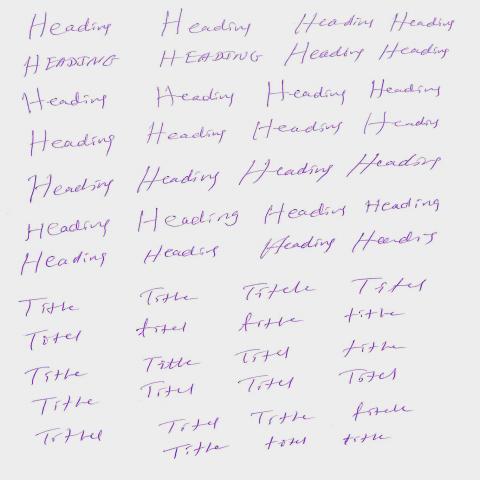 Heading Heading Heading Heading
HEADING HEADING Heading Heading
Heading Heading Heading Heading
Heading Heading Heading Heading
Heading Heading Heading Heading
Heading Heading Heading Heading
Heading Heading Heading
Title Title Titele Titel
Totel titel title title
Title Title Titel title
Title Titel Titel Totel
Tittel Titel Title
Title totel title